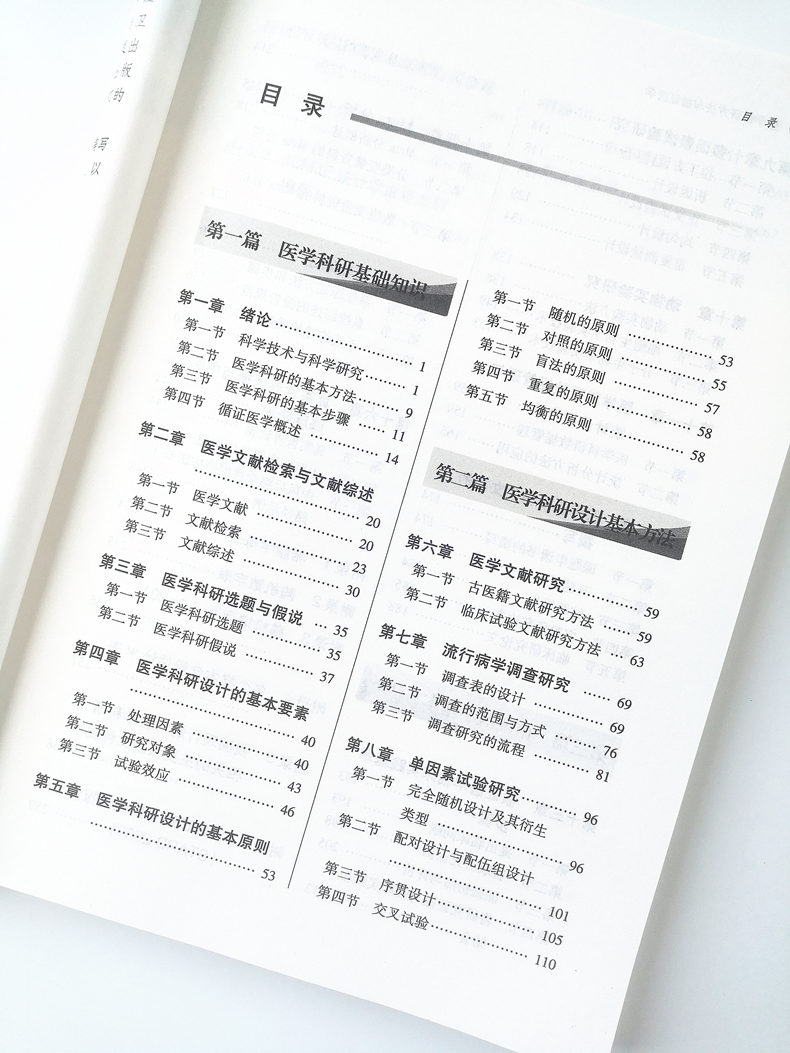 卫
出
版
的
写
以
目 录
目 录
第一篇 医学科研基础知识
第一章 绪论……………………1
第一节 科学技术与科学研究………1
第二节 医学科研的基本方法………9
第三节 医学科研的基本步骤………11
第四节 循证医学概述……………14
第二章 医学文献检索与文献综述
……………………………20
第一节 医学文献………………20
第二节 文献检索………………23
第三节 文献综述………………30
第三章 医学科研选题与假说……35
第一节 医学科研选题……………35
第二节 医学科研假说……………37
第四章 医学科研设计的基本要素
……………………………40
第一节 处理因素………………40
第二节 研究对象………………43
第三节 试验效应………………46
第五章 医学科研设计的基本原则
……………………………53
第一节 随机的原则……………53
第二节 对照的原则……………55
第三节 盲法的原则……………57
第四节 重复的原则……………58
第五节 均衡的原则……………58
第二篇 医学科研设计基本方法
第六章 医学文献研究……………59
第一节 古医籍文献研究方法………59
第二节 临床试验文献研究方法……63
第七章 流行病学调查研究………69
第一节 调查表的设计……………69
第二节 调查的范围与方式………76
第三节 调查研究的流程…………81
第八章 单因素试验研究…………96
第一节 完全随机设计及其衍生
类型……………………96
第二节 配对设计与配伍组设计
……………………………101
第三节 序贯设计………………105
第四节 交叉试验………………110